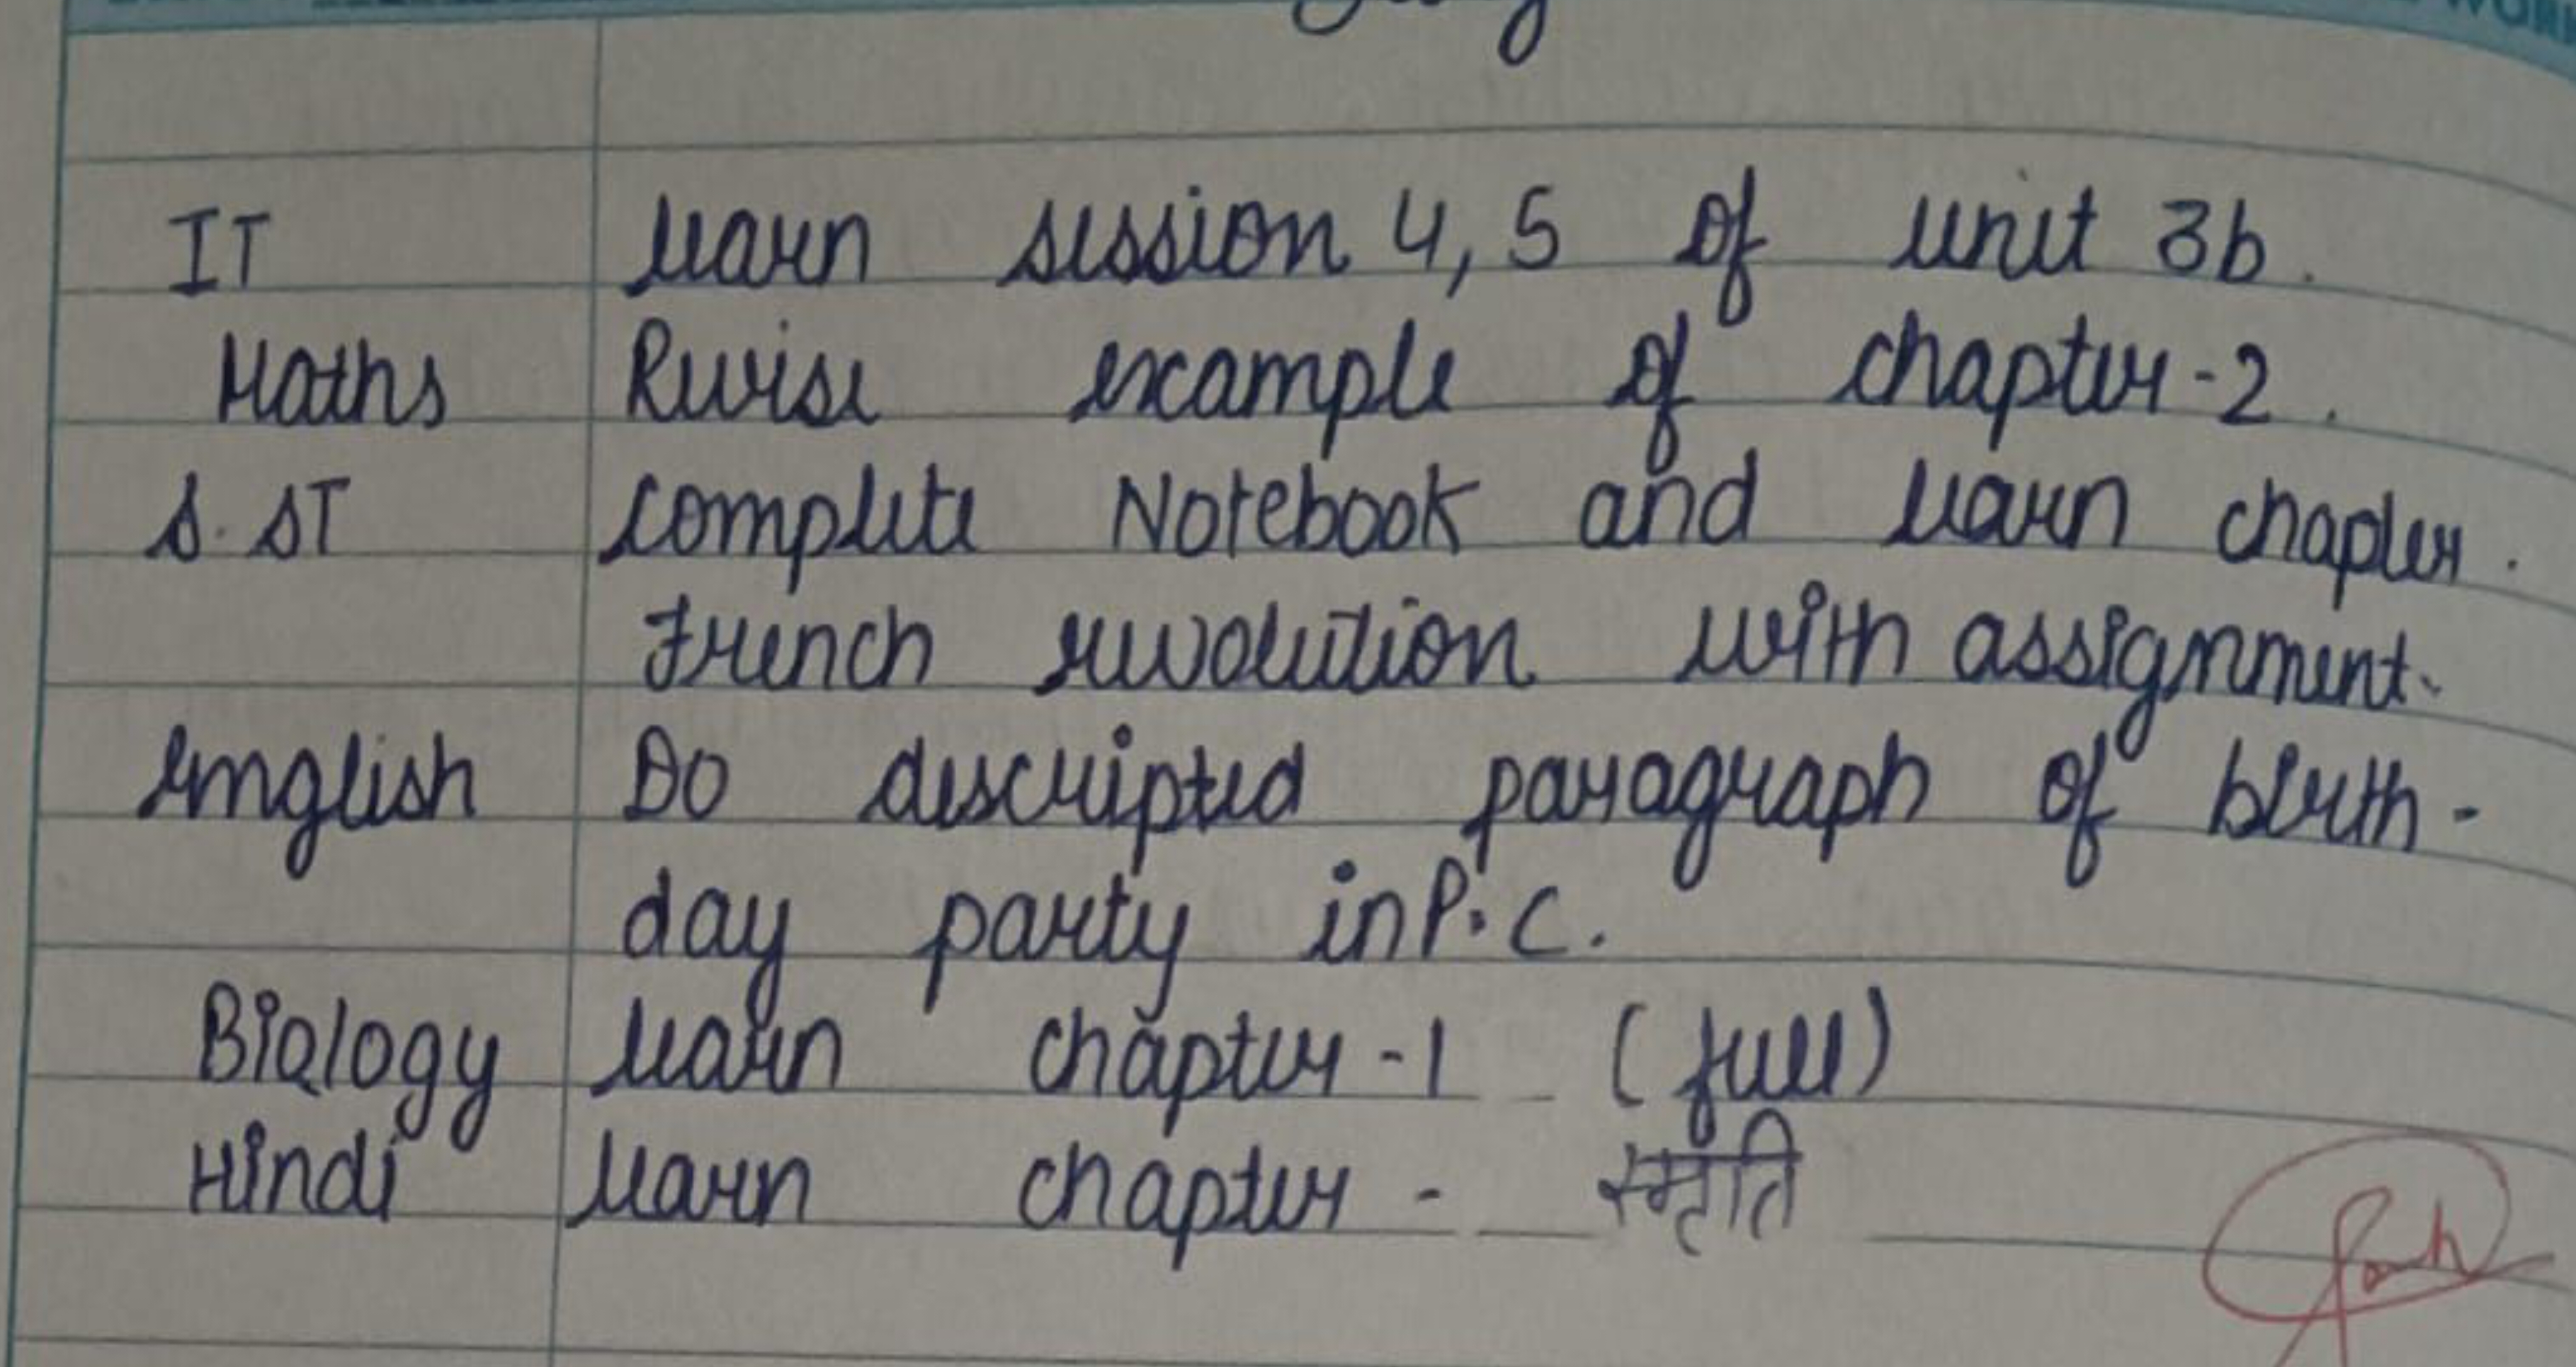 IT learn session 4, 5 of unit 3b.
Maths Revise example of chapter-2.
S.ST complete Notebook and learn chapter.
French revolution with assignment.
English Do descripted paragraph of birth-
day party in P.C.
Biology learn chapter-1 (full)
Hindi learn chapter - स्मृति